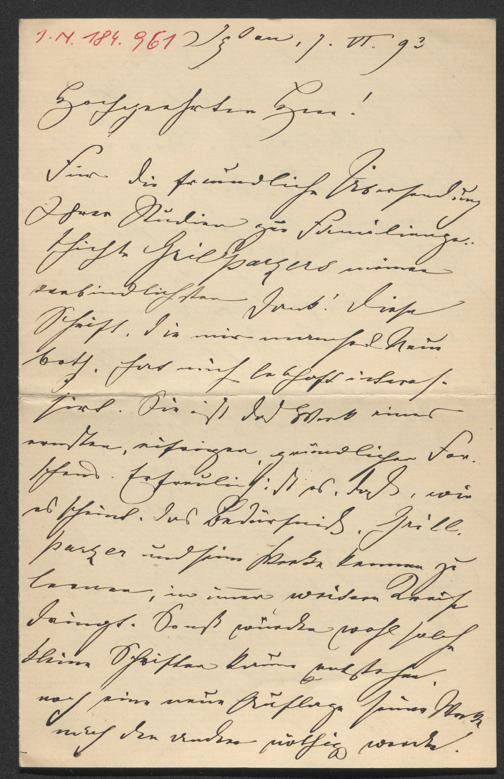 I. N. 184.961
Iglau, 7. VI. 93
Hochgeehrter Herr!
Für die freundliche Übersendung
Ihrer Studien zur Familienge-
schichte Grillparzers meinen
verbindlichsten Dank! Diese
Schrift, die mir manches Neue
both, hat mich lebhaft interes-
sirt. Sie ist das Werk eines
ernsten, eifrigen, gründlichen For-
schens. Erfreulich ist es, daß, wie
es scheint, das Bedürfniß, Grill-
parzer und seine Werke kennen zu
lernen, in immer weitere Kreise
dringt. Sonst würden wohl solche
kleine Schriften kaum entstehen,
noch eine neue Auflage seiner Werke
nach der andern nöthig werden!